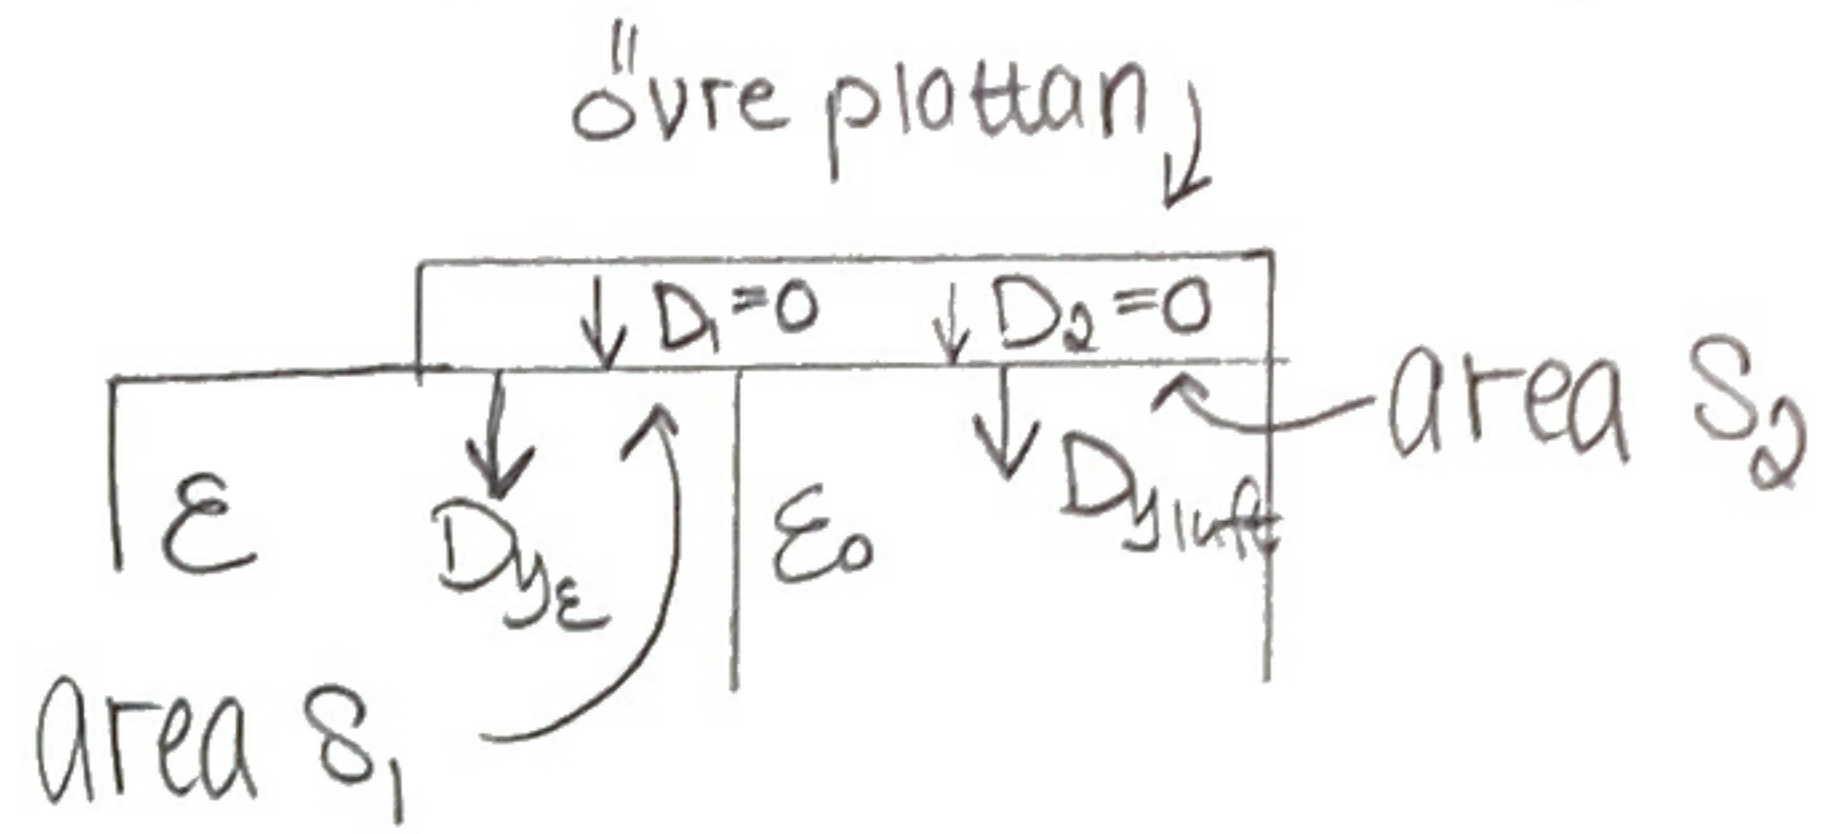 övre plattan
D₁=0
D₂=0
area S₂
ε
D_yε
ε₀
D_yluft
area S₁